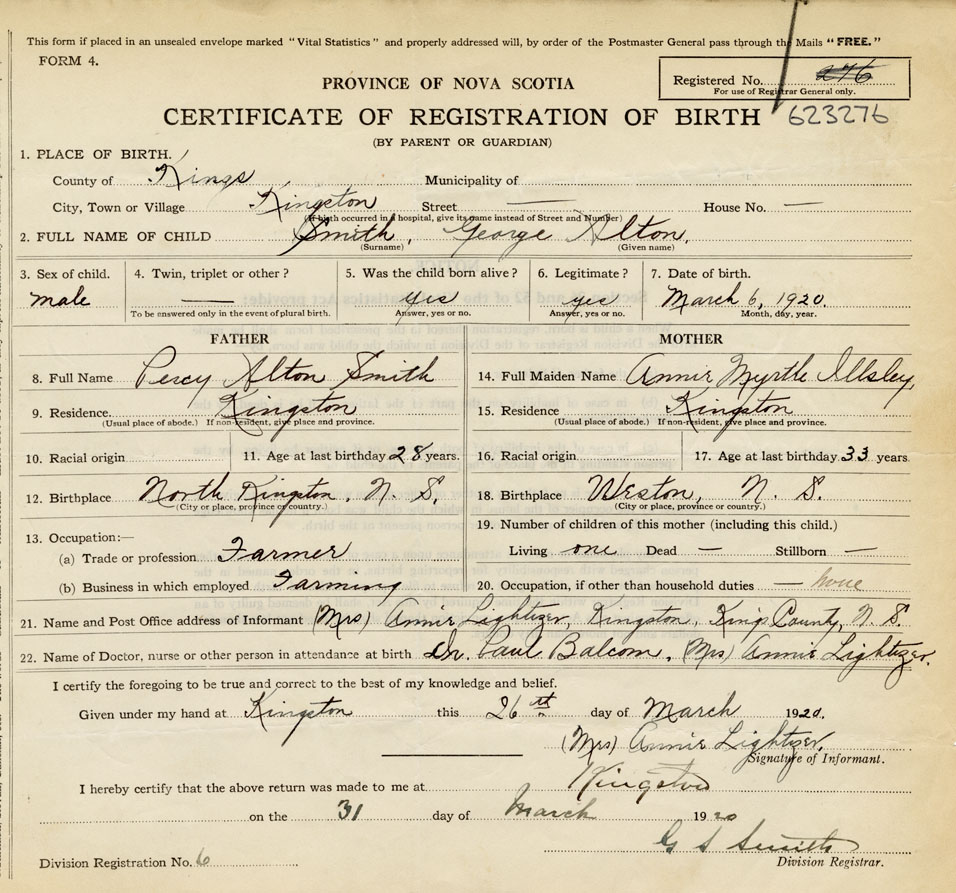 This form if placed in an unsealed envelope marked "Vital Statistics" and properly addressed will, by order of the Postmaster General pass through the Mails "FREE."
FORM 4.
Registered No. 276
For use of Registrar General only.
PROVINCE OF NOVA SCOTIA
CERTIFICATE OF REGISTRATION OF BIRTH 623276
(BY PARENT OR GUARDIAN)
1. PLACE OF BIRTH.
County of Kings Municipality of
City, Town or Village Kingston Street — House No. —
(If birth occurred in hospital, give its name instead of Street and Number)
2. FULL NAME OF CHILD Smith, George Alton.
(Surname) (Given name)
3. Sex of child. 4. Twin, triplet or other? 5. Was the child born alive? 6. Legitimate? 7. Date of birth.
male — yes yes March 6, 1920.
To be answered only in the event of plural birth. Answer, yes or no. Answer, yes or no. Month, day, year.
FATHER MOTHER
8. Full Name Percy Alton Smith 14. Full Maiden Name Annie Myrtle Illsley,
9. Residence. Kingston 15. Residence Kingston
(Usual place of abode.) If non-resident, give place and province. (Usual place of abode.) If non-resident, give place and province.
10. Racial origin 11. Age at last birthday 28 years. 16. Racial origin 17. Age at last birthday 33 years.
12. Birthplace North Kingston, N. S. 18. Birthplace Weston, N. S.
(City or place, province or country.) (City or place, province or country.)
13. Occupation:— 19. Number of children of this mother (including this child.)
(a) Trade or profession Farmer Living one Dead — Stillborn —
(b) Business in which employed Farming 20. Occupation, if other than household duties — none
21. Name and Post Office address of Informant (Mrs) Annie Lightizer, Kingston, Kings County, N. S.
22. Name of Doctor, nurse or other person in attendance at birth Dr. Paul Balcom, (Mrs) Annie Lightizer.
I certify the foregoing to be true and correct to the best of my knowledge and belief.
Given under my hand at Kingston this 26th day of March 1920.
(Mrs) Annie Lightizer,
Signature of Informant.
I hereby certify that the above return was made to me at Kingston
on the 31 day of March 1920
G S Smith
Division Registration No. 6 Division Registrar.